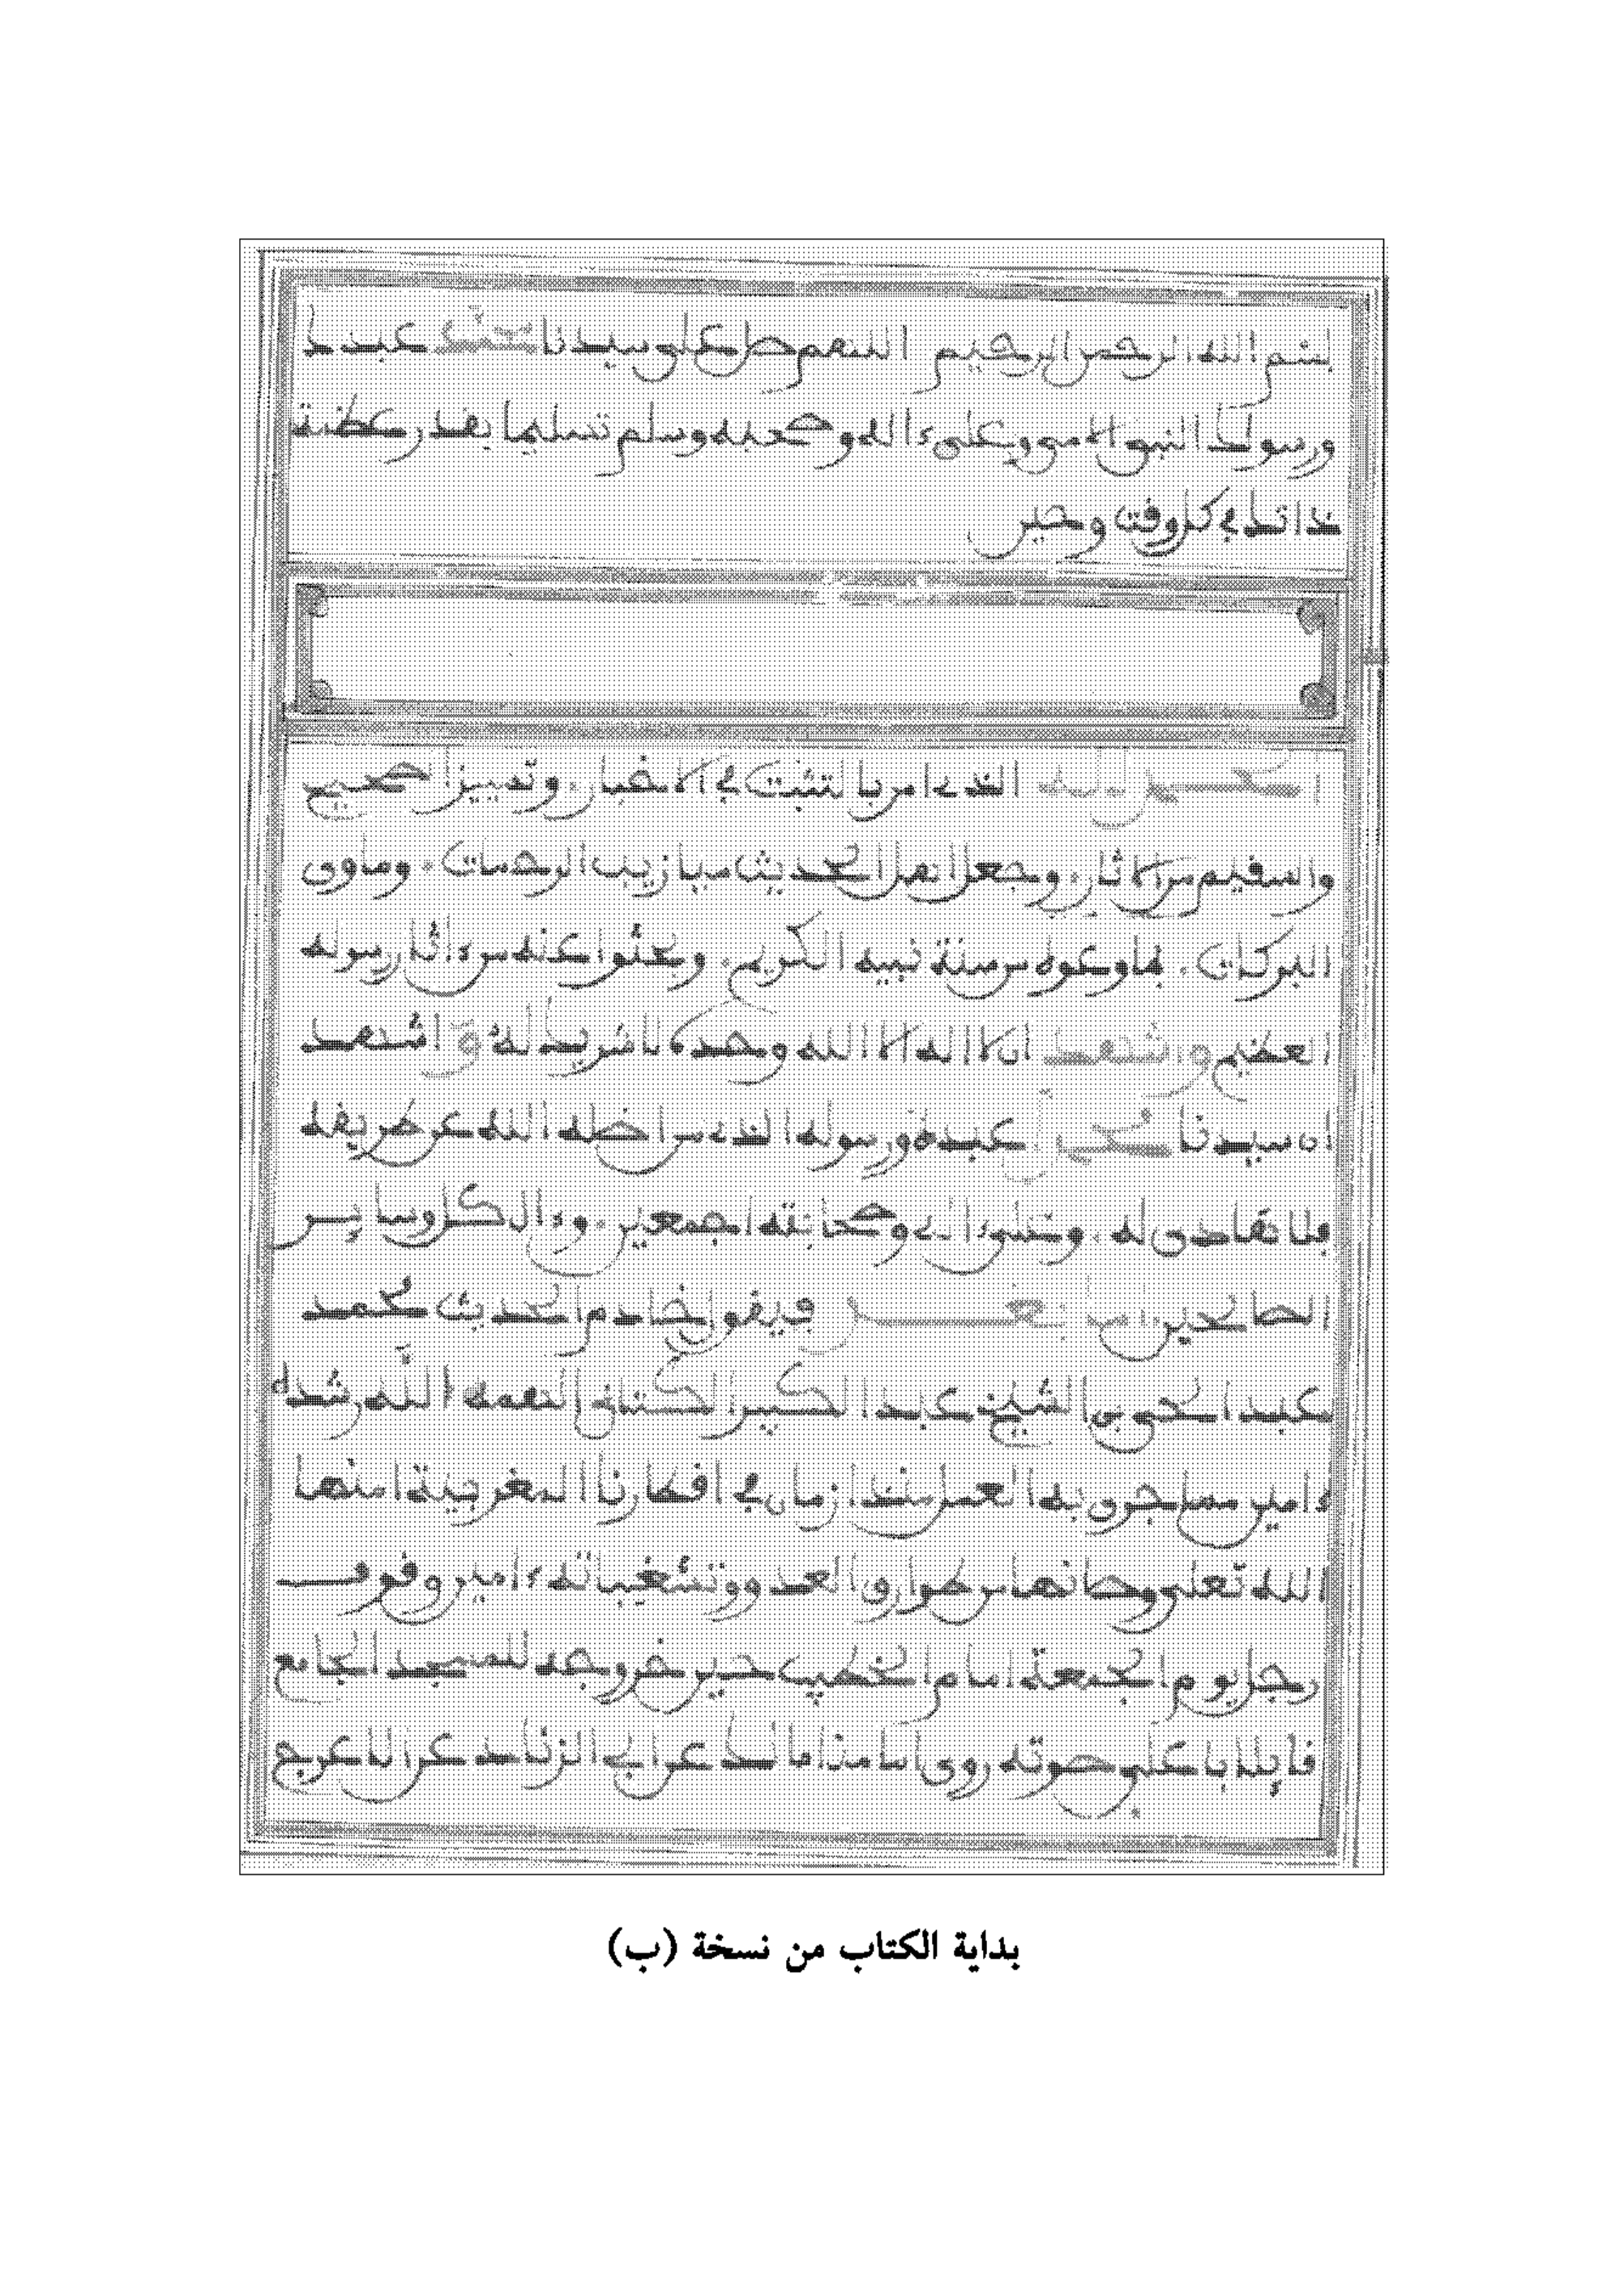 بسم الله الرحمن الرحيم اللهم صل على سيدنا محمد عبدك
ورسولك النبي الامي وعلى ءاله وصحبه وسلم تسليما بقدر عظمة
ذاتك في كل وقت وحين
الحمد لله الذي امر بالتثبت في الاخبار. وتمييز الصحيح
والسقيم من الاثار. وجعل اهل الحديث ميازيب الرحمات. وماوى
البركات. بما وعوه من سنة نبيه الكريم. وبحثوا عنه من ءاثار رسوله
العظيم واشهد ان لا اله الا الله وحده لا شريك له واشهد
ان سيدنا محمدا عبده ورسوله الذي من اضله الله عن طريقه
فلا هادي له. وعلى ءاله وصحابته اجمعين. وءال كل وساير
الصالحين اما بعد فيقول خادم الحديث محمد
عبد الحي بن الشيخ عبد الكبير الكتاني الهمه الله رشده
ءامين مما جرى به العمل منذ ازمان في اقطارنا المغربية امنها
الله تعلى وصانها من طوارق العدو وتشغيباته ءامين وقوف
رجل يوم الجمعة امام الخطيب حين خروجه للمسجد الجامع
قايلا باعلى صوته روى امامنا مالك عن ابي الزناد عن الاعرج
بداية الكتاب من نسخة (ب)